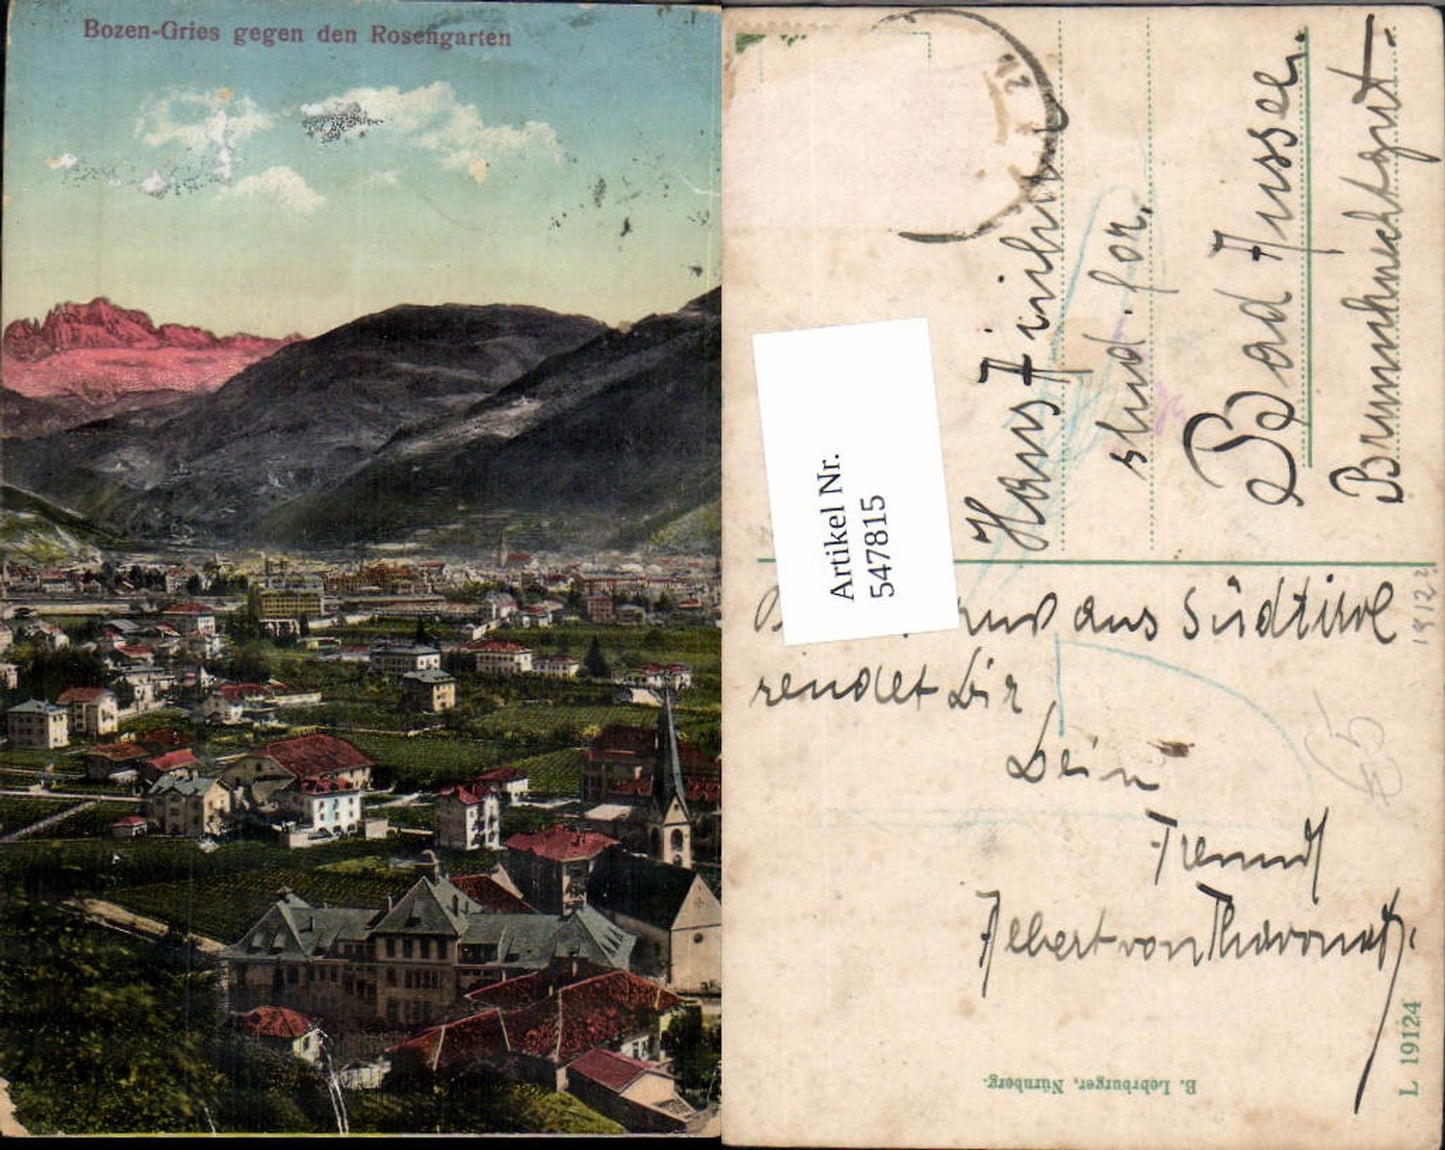 Bozen-Gries gegen den Rosengarten
Hans
stud. for.
Bad Aussee.
Brunnknechtgut.
Artikel Nr.
547815
aus Südtirol
sendet Dir
Dein
Freund
Albert von
E. Lehrburger, Nürnberg.
L 19124